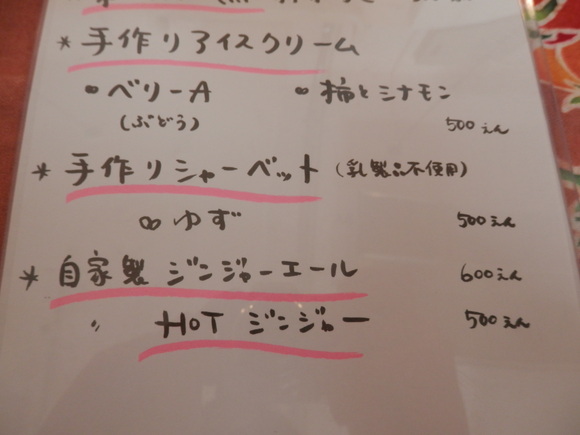 * 手作りアイスクリーム
• ベリーA • 柿とシナモン
(ぶどう) 500えん
* 手作りシャーベット (乳製品不使用)
ゆず 500えん
* 自家製 ジンジャーエール 600えん
〃 HOT ジンジャー 500えん